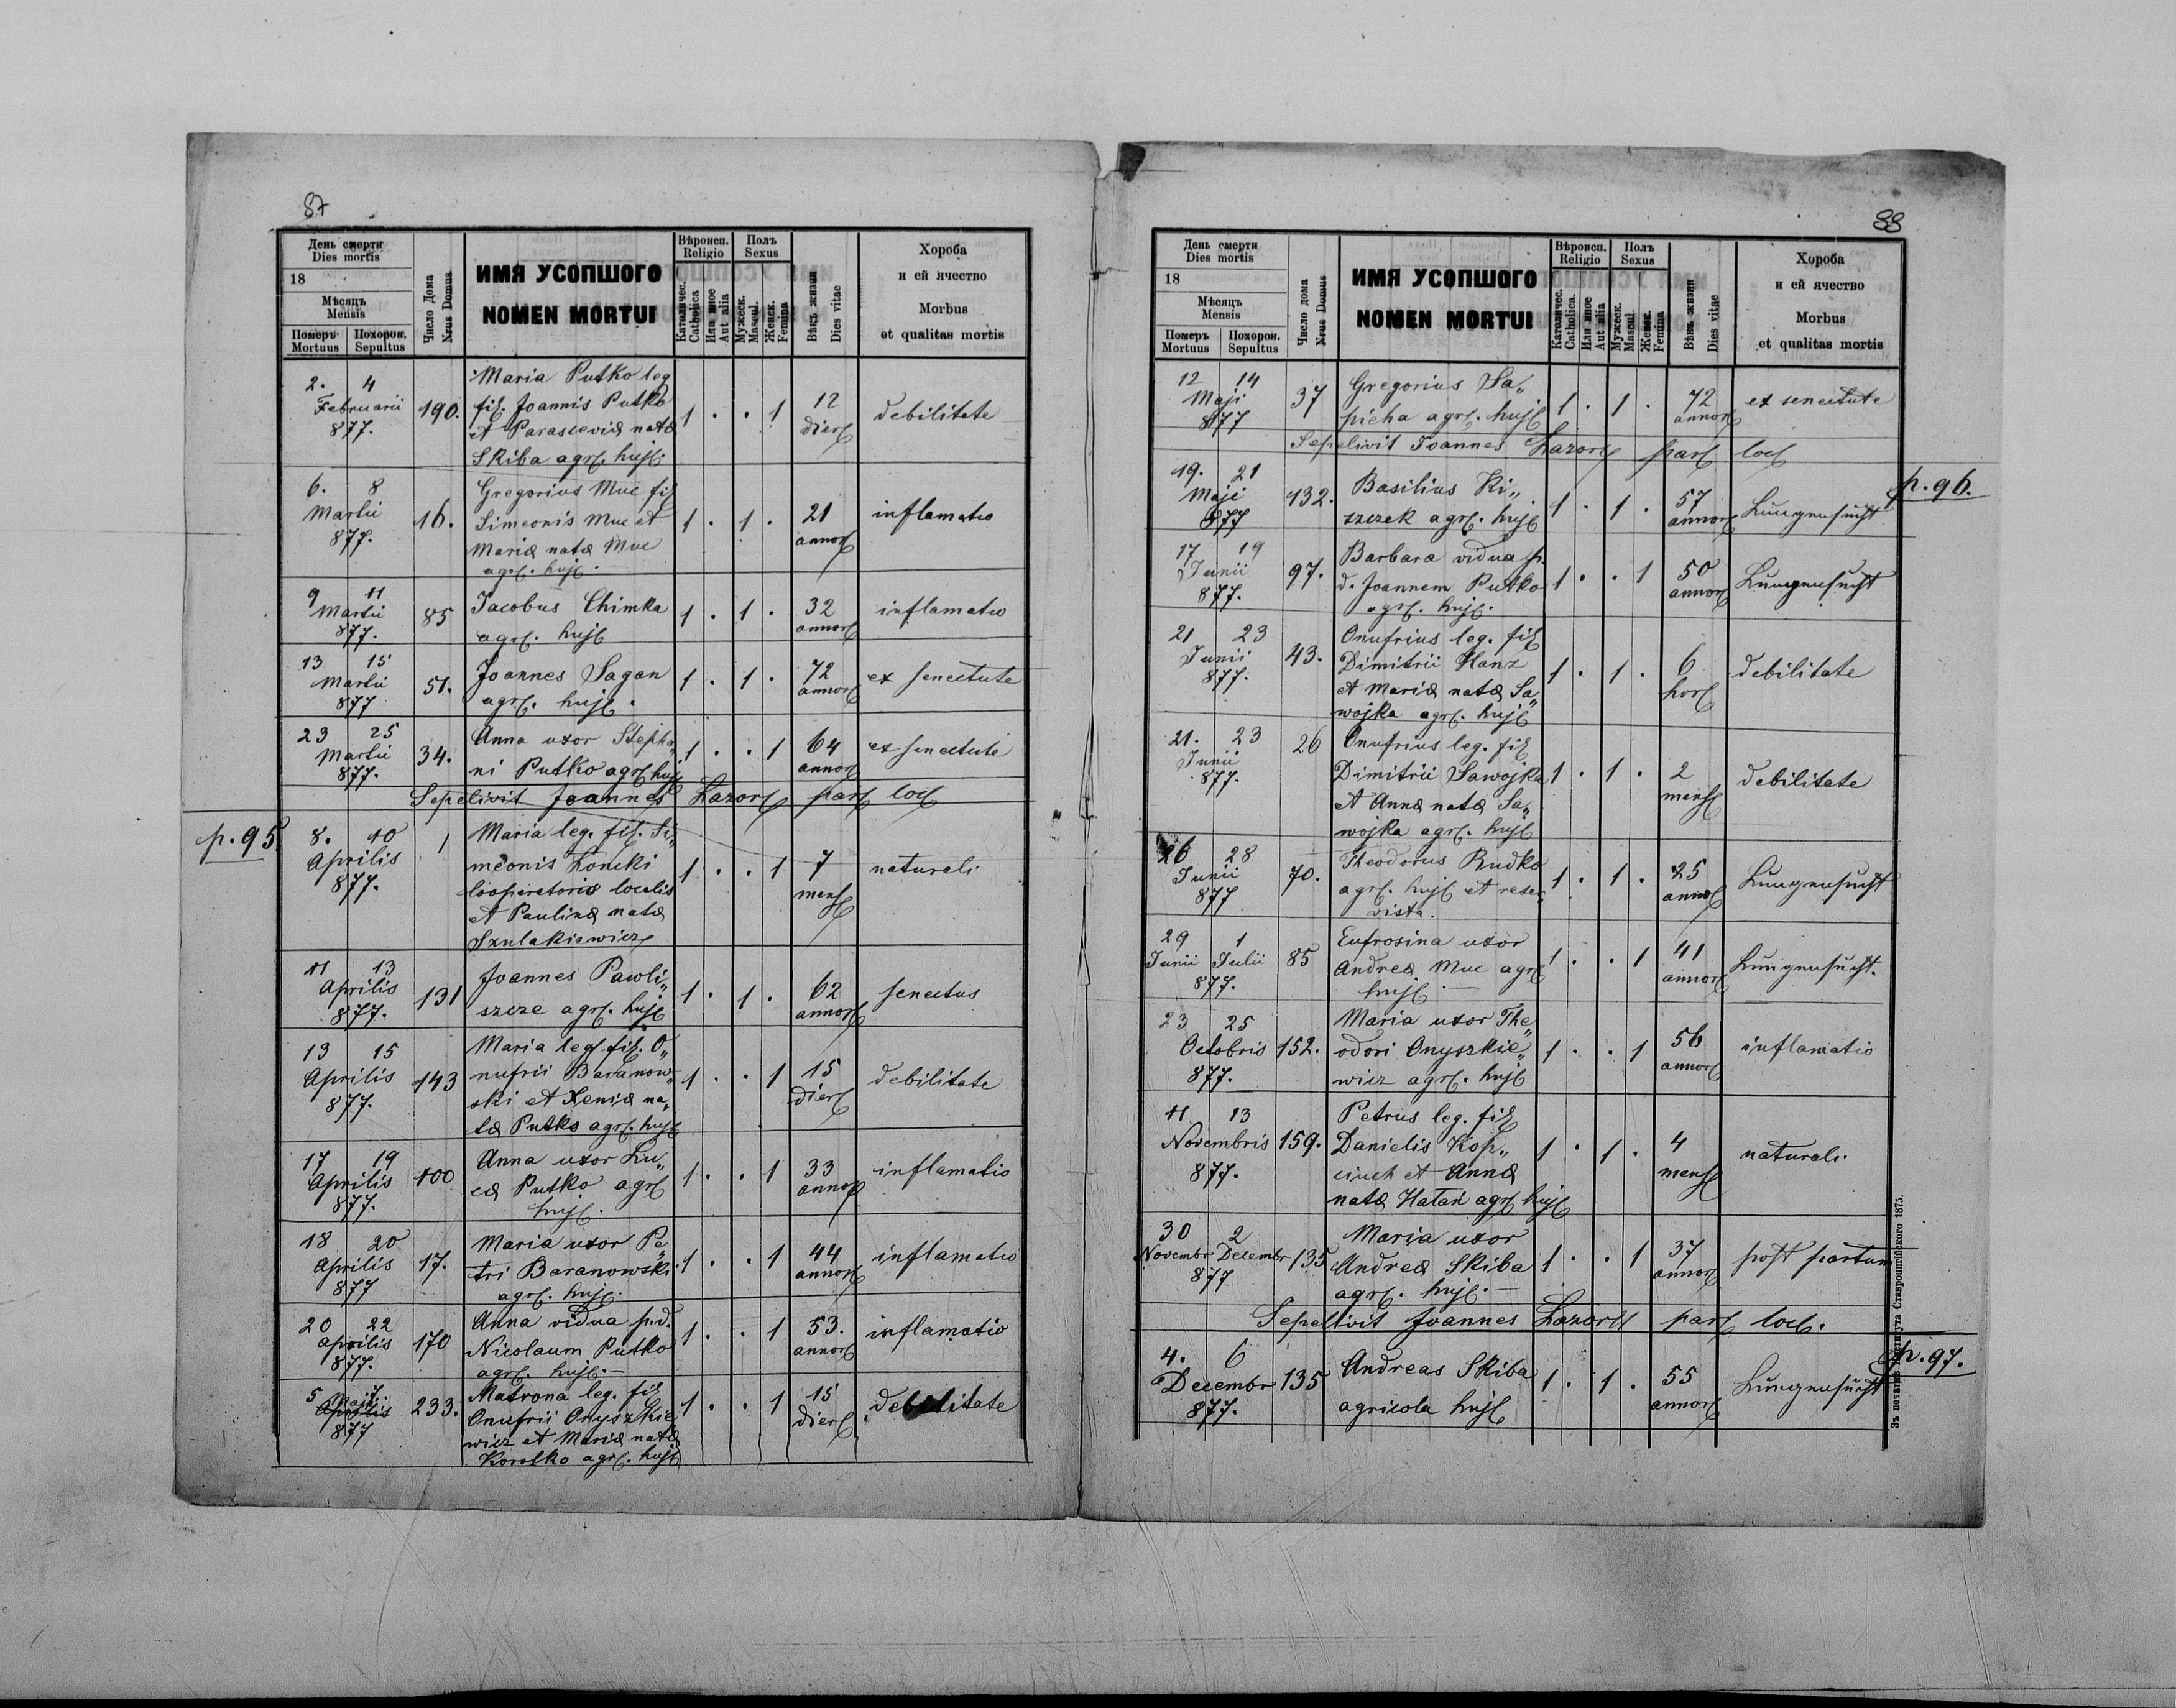 87
День смерти
Dies mortis
18
Мѣсяцъ
Mensis
Померъ
Mortuus
Похорон.
Sepultus
Число Дома
Nrus Domus
ИМЯ УСОПШОГО
NOMEN MORTUI
Вѣроисп.
Religio
Католичес.
Catholica
Или иное
Aut alia
Полъ
Sexus
Мужеск.
Mascul.
Женск.
Femina
Вѣкъ жизни
Dies vitae
Хороба
и ей ячество
Morbus
et qualitas mortis
2. 4
Februarii
877.
190.
Maria Putko leg
fil. Joannis Putko
et Parasceviæ natæ
Skiba agr. huj.
1 . . 1
12
dier
debilitate
6. 8
Martii
877.
16.
Gregorius Muc fil
Simeonis Muc et
Mariæ natæ Muc
agr. huj.
1 . 1 .
21
annor
inflamatio
9 11
Martii
877.
85
Jacobus Chimka
agr. huj
1 . 1 .
32
annor
inflamatio
13 15
Martii
877
51.
Joannes Sagan
agr. huj.
1 . 1 .
72
annor
ex senectute
23 25
Martii
877.
34.
Anna uxor Stepha„
ni Putko agr. huj
1 . . 1
64
annor
ex senectute
Sepelivit Joannes Lazor par loc
p. 95
8. 10
Aprilis
877.
1
Maria leg. fil. Si„
meonis Łoncki
Cooperatoris localis
et Paulinæ natæ
Szulakiewicz
1 . . 1
7
mens
naturali
11 13
Aprilis
877.
131
Joannes Pawli„
szcze agr. huj
1 . 1 .
62
annor
senectus
13 15
Aprilis
877.
143
Maria leg fil. O„
nufrii Baranow„
ski et Xeniæ na„
tæ Putko agr. huj
1 . . 1
15
dier
debilitate
17 19
Aprilis
877.
100
Anna uxor Lu„
cæ Putko agr
huj.
1 . . 1
33
annor
inflamatio
18 20
Aprilis
877
17.
Maria uxor Pe„
tri Baranowski
agr. huj.
1 . . 1
44
annor
inflamatio
20 22
Aprilis
877.
170
Anna vidua p.d.
Nicolaum Putko
agr. huj.—
1 . . 1
53.
annor
inflamatio
5 7
Maji
Aprilis
877
233.
Matrona leg. fil
Onufrii Onyszkie„
wicz et Mariæ natæ
Korolko agr. huj
1 . . 1
15
dier
debilitate
88
День смерти
Dies mortis
18
Мѣсяцъ
Mensis
Померъ
Mortuus
Похорон.
Sepultus
Число дома
Nrus Domus
ИМЯ УСОПШОГО
NOMEN MORTUI
Вѣроисп.
Religio
Католичес.
Catholica.
Или иное
Aut alia
Полъ
Sexus
Мужеск.
Mascul.
Женск.
Femina
Вѣкъ жизни
Dies vitae
Хороба
и ей ячество
Morbus
et qualitas mortis
12 14
Maji
877
37
Gregorius Sa„
pieha agr. huj
1 . 1 .
72
annor
ex senectute
Sepelivit Joannes Lazor par loc
p. 96.
19. 21
Maji
877
132.
Basilius Ki„
szczek agr. huj
1 . 1 .
57
annor
Lungensucht
17 19
Junii
877.
97.
Barbara vidua p.
d. Joannem Putko
agr. huj.
1 . . 1
50
annor
Lungensucht
21 23
Junii
877.
43.
Onufrius leg. fil
Dimitrii Hanz
et Mariæ natæ Sa„
wojka agr. huj
1 . 1 .
6
hor
debilitate
21. 23
Junii
877.
26
Onufrius leg. fil
Dimitrii Sawojka
et Annæ natæ Sa„
wojka agr. huj
1 . 1 .
2
mens
debilitate
26 28
Junii
877
70.
Theodorus Rudko
agr. huj et reser„
vista.
1 . 1 .
25
annor
Lungensucht
29 1
Junii Julii
877.
85
Eufrosina uxor
Andreæ Muc agr
huj.—
1 . . 1
41
annor
Lungensucht.
23 25
Octobris
877.
152.
Maria uxor The„
odori Onyszkie„
wicz agr. huj
1 . . 1
56
annor
inflamatio
11 13
Novembris
877.
159.
Petrus leg. fil
Danielis Kop„
ciuch et Annæ
natæ Hatań agr huj
1 . 1 .
4
mens
naturali
30 2
Novembr Decembr
877
135
Maria uxor
Andreæ Skiba
agr. huj.—
1 . . 1
37
annor
post partum
Sepelivit Joannes Lazor par loc.
p. 97.
4. 6
Decembr
877.
135
Andreas Skiba
agricola huj
1 . 1 .
55
annor
Lungensucht
Ставропигійского 1875.